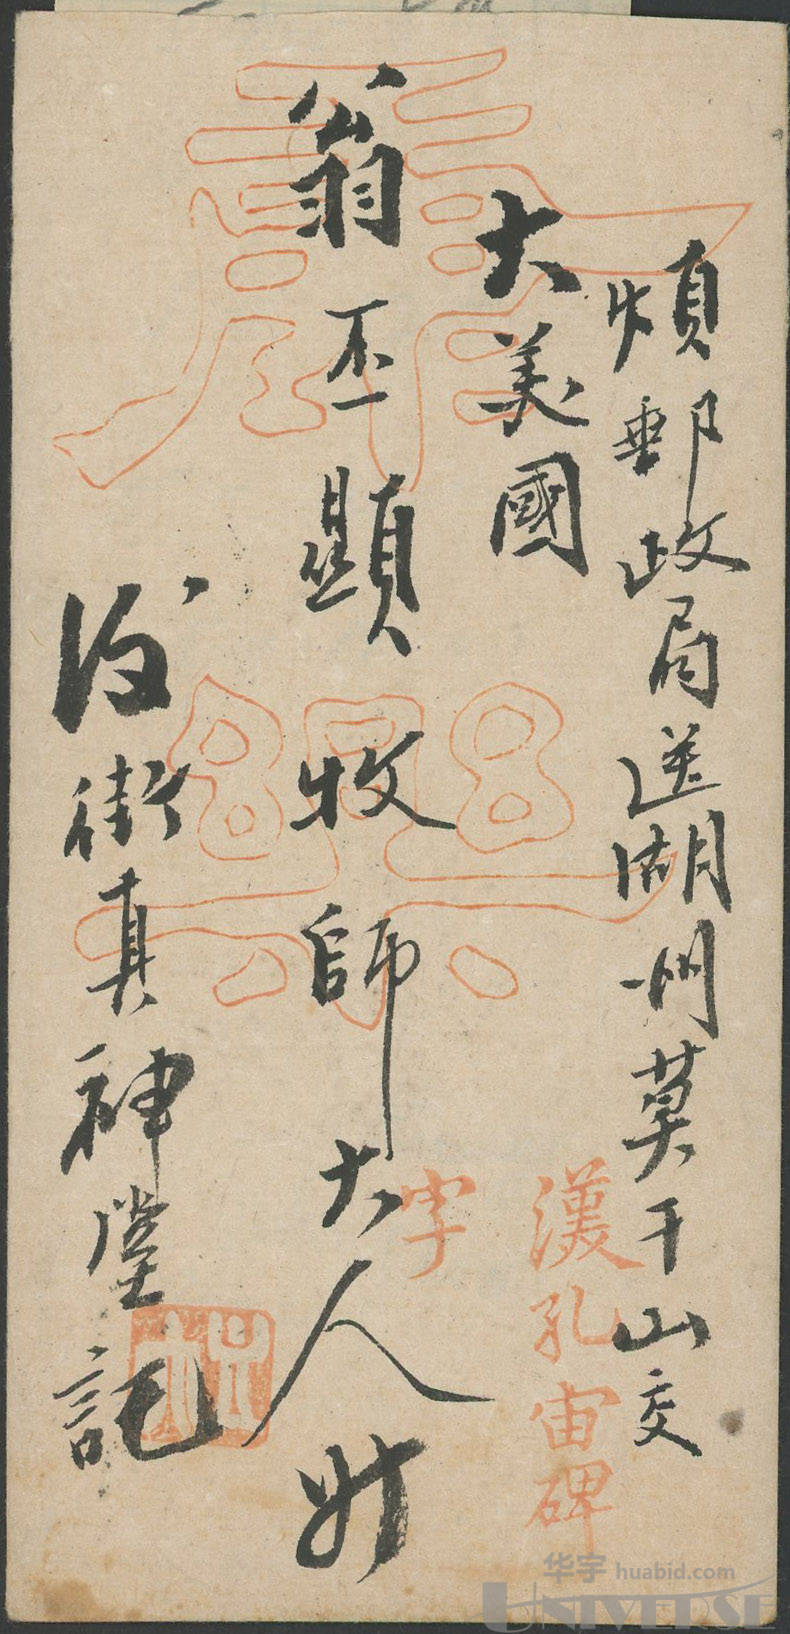 煩郵政局送湖州莫干山交
大美國
翁丕顯牧師大人
後街真神堂託
漢孔宙碑
字
华宇 huabid.com
UNIVERSE